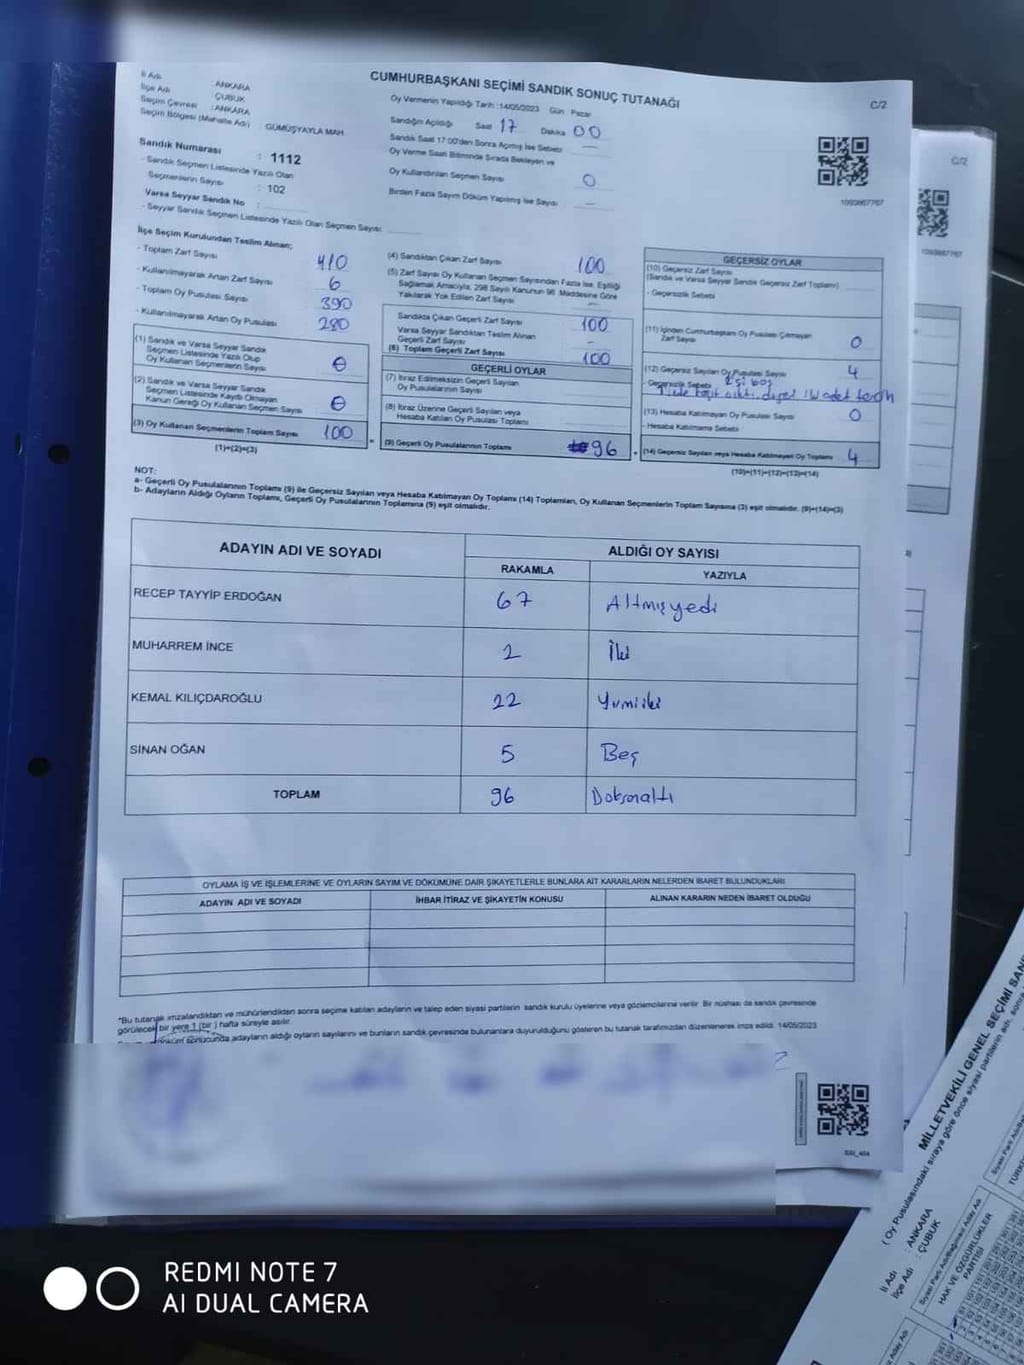 CUMHURBAŞKANI SEÇİMİ SANDIK SONUÇ TUTANAĞI
C/2
İl Adı : ANKARA
İlçe Adı : ÇUBUK
Seçim Çevresi : ANKARA
Seçim Bölgesi (Mahalle Adı) GÜMÜŞYAYLA MAH.
Sandık Numarası : 1112
- Sandık Seçmen Listesinde Yazılı Olan
Seçmenlerin Sayısı : 102
Varsa Seyyar Sandık No :
- Seyyar Sandık Seçmen Listesinde Yazılı Olan Seçmen Sayısı
Oy Vermenin Yapıldığı Tarih : 14/05/2023 Gün : Pazar
Sandığın Açıldığı Saat 17 Dakika 00
Sandık Saat 17:00'den Sonra Açılmış İse Sebebi —
Oy Verme Saati Bitiminde Sırada Bekleyen ve
Oy Kullandırılan Seçmen Sayısı 0
Birden Fazla Sayım Döküm Yapılmış İse Sayısı —
1093867767
İlçe Seçim Kurulundan Teslim Alınan;
- Toplam Zarf Sayısı 410
- Kullanılmayarak Artan Zarf Sayısı 6
- Toplam Oy Pusulası Sayısı 390
- Kullanılmayarak Artan Oy Pusulası 280
(1) Sandık ve Varsa Seyyar Sandık
Seçmen Listesinde Yazılı Olup
Oy Kullanan Seçmenlerin Sayısı
(2) Sandık ve Varsa Seyyar Sandık
Seçmen Listesinde Kayıtlı Olmayan
Kanun Gereği Oy Kullanan Seçmen Sayısı
(3) Oy Kullanan Seçmenlerin Toplam Sayısı 100
(1)+(2)=(3)
(4) Sandıktan Çıkan Zarf Sayısı 100
(5) Zarf Sayısı Oy Kullanan Seçmen Sayısından Fazla İse, Eşitliği
Sağlamak Amacıyla, 298 Sayılı Kanunun 98. Maddesine Göre
Yakılarak Yok Edilen Zarf Sayısı —
Sandıkta Çıkan Geçerli Zarf Sayısı 100
Varsa Seyyar Sandıktan Teslim Alınan
Geçerli Zarf Sayısı -
(6) Toplam Geçerli Zarf Sayısı 100
GEÇERLİ OYLAR
(7) İtiraz Edilmeksizin Geçerli Sayılan
Oy Pusulalarının Sayısı
(8) İtiraz Üzerine Geçerli Sayılan veya
Hesaba Katılan Oy Pusulası Toplamı
(9) Geçerli Oy Pusulalarının Toplamı 96
GEÇERSİZ OYLAR
(10) Geçersiz Zarf Sayısı
(Sandık ve Varsa Seyyar Sandık Geçersiz Zarf Toplamı)
- Geçersizlik Sebebi
(11) İçinden Cumhurbaşkanı Oy Pusulası Çıkmayan
Zarf Sayısı 0
(12) Geçersiz Sayılan Oy Pusulası Sayısı 4
- Geçersizlik Sebebi boş
(13) Hesaba Katılmayan Oy Pusulası Sayısı 0
- Hesaba Katılmama Sebebi
(14) Geçersiz Sayılan veya Hesaba Katılmayan Oy Toplamı 4
(10)+(11)+(12)+(13)=(14)
NOT:
a- Geçerli Oy Pusulalarının Toplamı (9) ile Geçersiz Sayılan veya Hesaba Katılmayan Oy Toplamı (14) Toplamları, Oy Kullanan Seçmenlerin Toplam Sayısına (3) eşit olmalıdır. (9)+(14)=(3)
b- Adayların Aldığı Oyların Toplamı, Geçerli Oy Pusulalarının Toplamına (9) eşit olmalıdır.
ADAYIN ADI VE SOYADI ALDIĞI OY SAYISI
RAKAMLA YAZIYLA
RECEP TAYYİP ERDOĞAN 67 Altmışyedi
MUHARREM İNCE 2 İki
KEMAL KILIÇDAROĞLU 22 Yirmiiki
SİNAN OĞAN 5 Beş
TOPLAM 96 Doksanaltı
OYLAMA İŞ VE İŞLEMLERİNE VE OYLARIN SAYIM VE DÖKÜMÜNE DAİR ŞİKAYETLERLE BUNLARA AİT KARARLARIN NELERDEN İBARET BULUNDUKLARI
ADAYIN ADI VE SOYADI İHBAR İTİRAZ VE ŞİKAYETİN KONUSU ALINAN KARARIN NEDEN İBARET OLDUĞU
*Bu tutanak imzalandıktan ve mühürlendikten sonra seçime katılan adayların ve talep eden siyasi partilerin sandık kurulu üyelerine veya gözlemcilerine verilir. Bir nüshası da sandık çevresinde
görülecek bir yere 1 (bir) hafta süreyle asılır.
sonucunda adayların aldığı oyların sayılarını ve bunların sandık çevresinde bulunanlara duyurulduğunu gösteren bu tutanak tarafımızdan düzenlenerek imza edildi. 14/05/2023
C/2
1093867767
MİLLETVEKİLİ GENEL SEÇİMİ
( Oy Pusulasındaki sıraya göre önce siyasi partilerin adı, sonra
İl Adı : ANKARA
İlçe Adı : ÇUBUK
HAK VE ÖZGÜRLÜKLER
PARTİSİ
REDMI NOTE 7
AI DUAL CAMERA